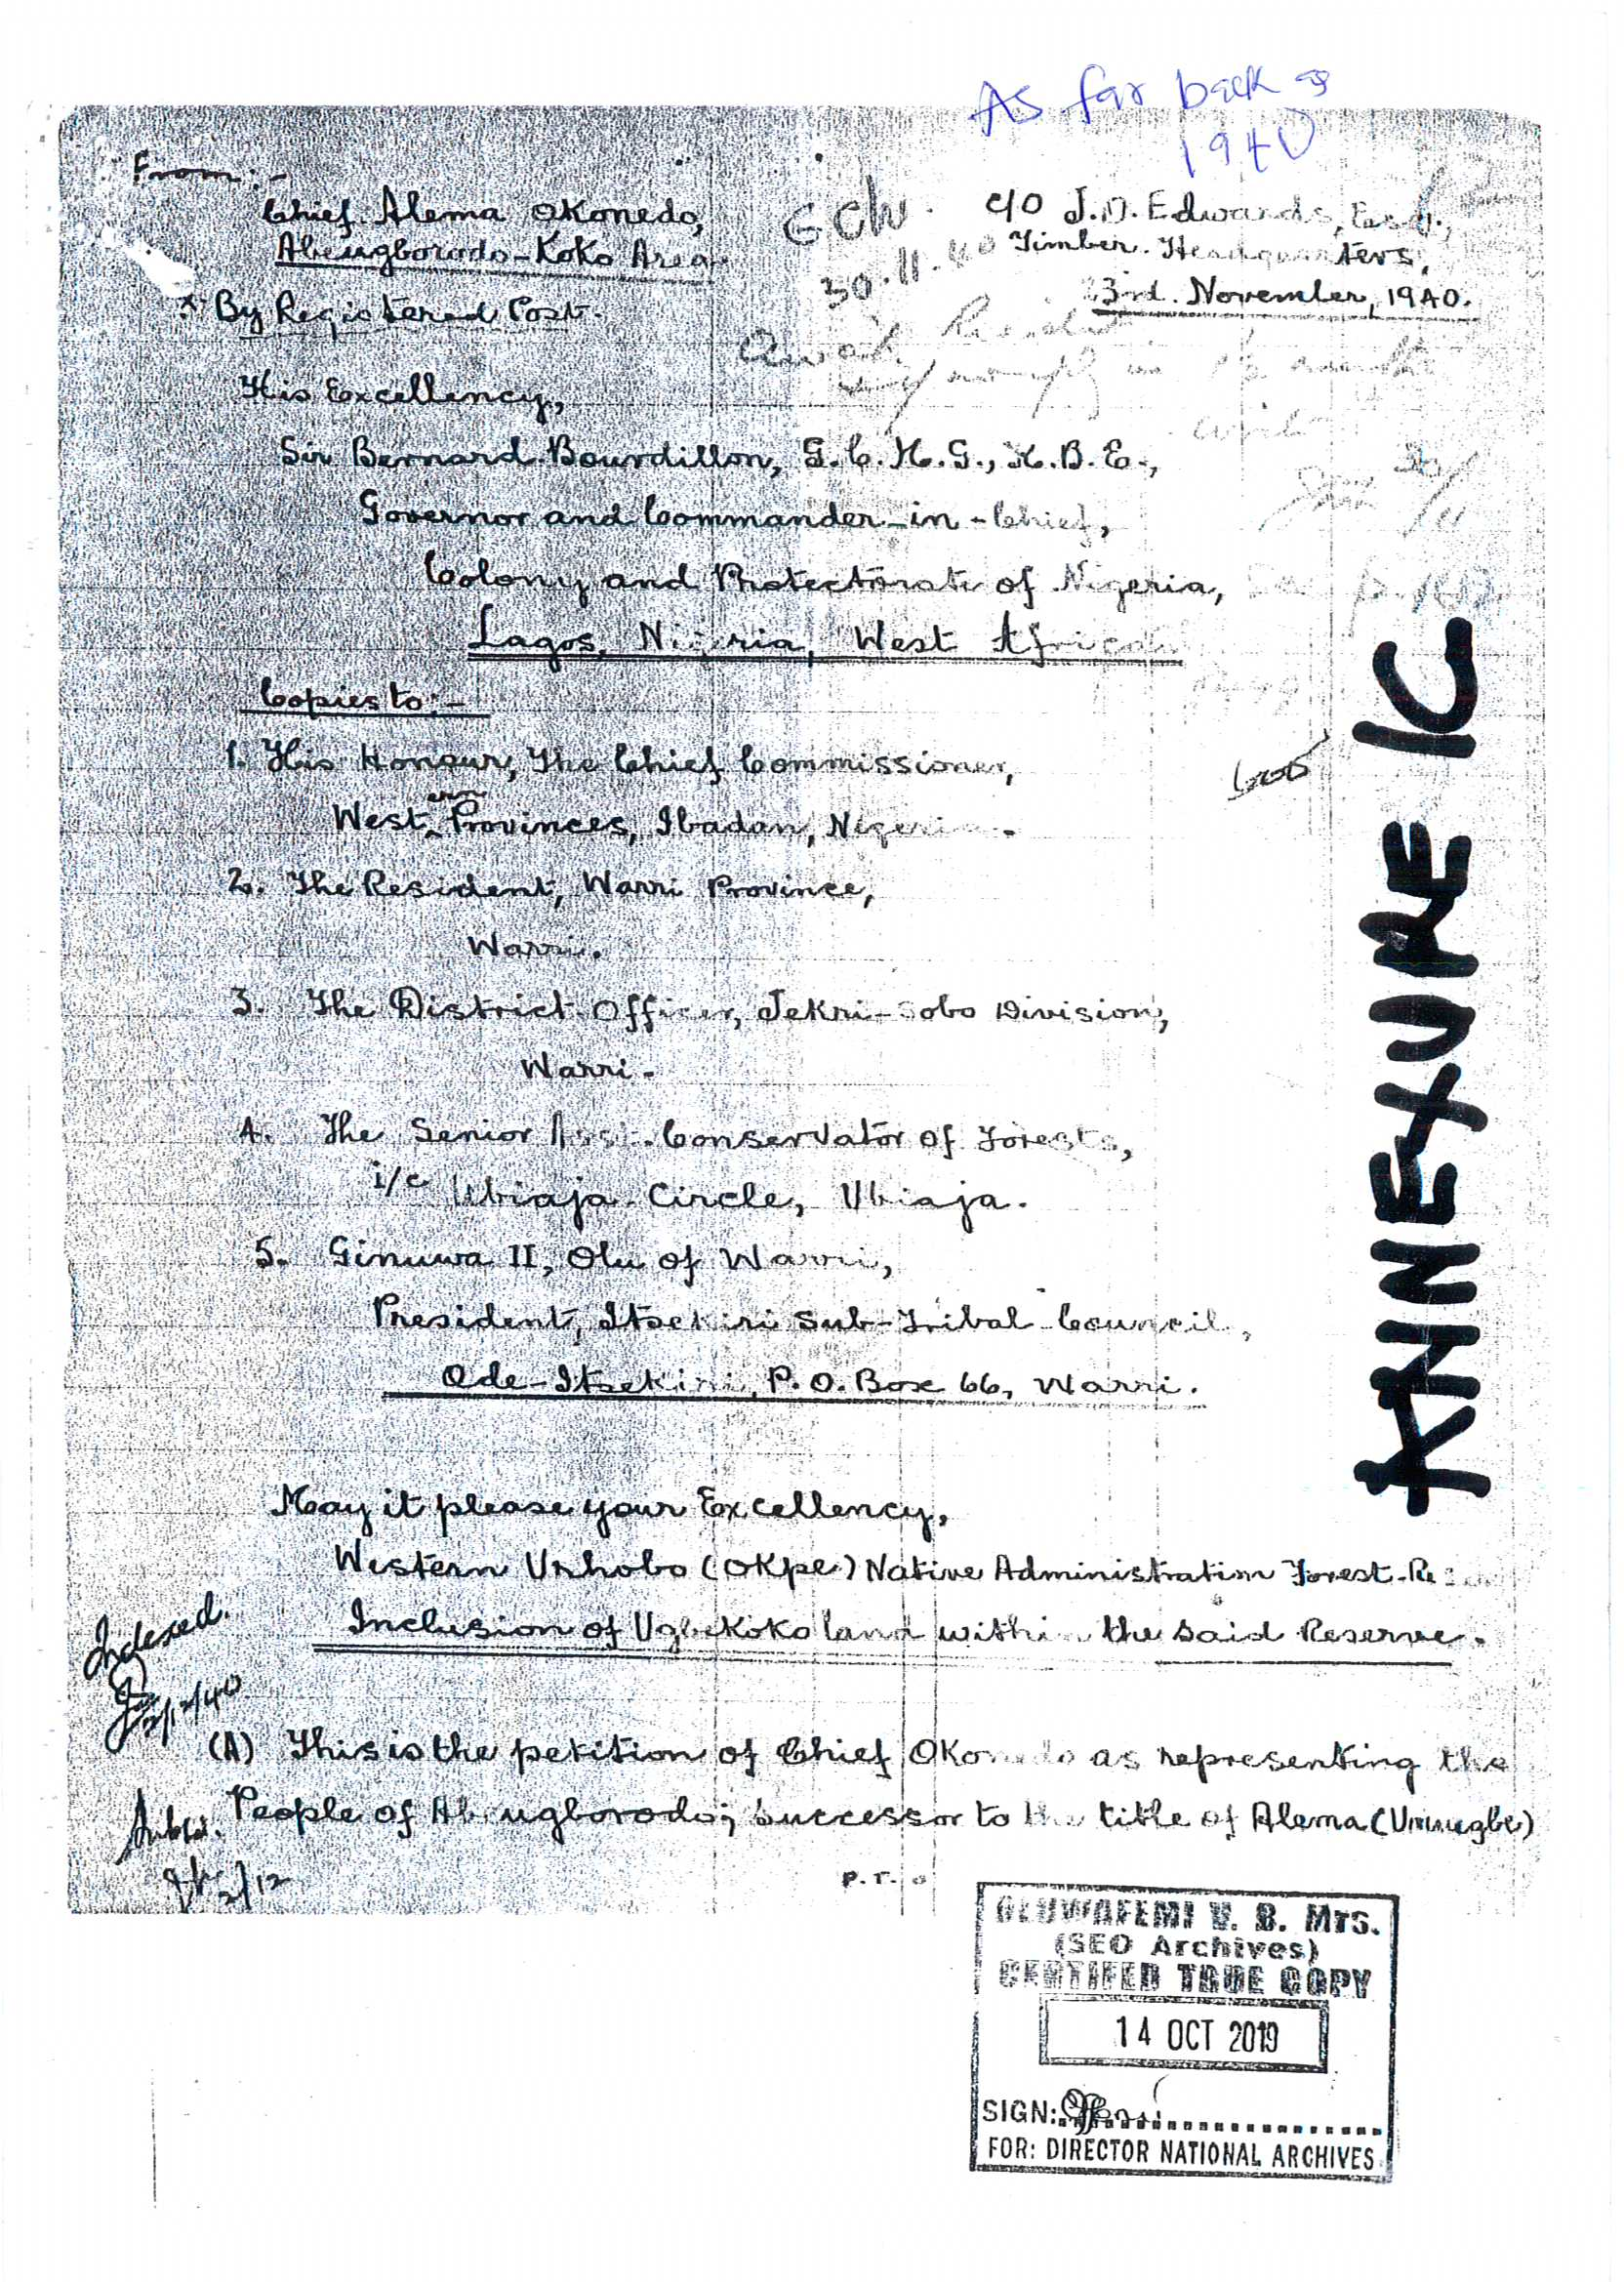 As far back as
1940
From:-
Chief Alema Okonedo,
Abeugborodo-Koko Area.
By Registered Post.
c/o J.D. Edwards, Esq.,
Timber Headquarters,
3rd. November, 1940.
30.11.40
His Excellency,
Sir Bernard Bourdillon, G.C.M.G., K.B.E.,
Governor and Commander-in-Chief,
Colony and Protectorate of Nigeria,
Lagos, Nigeria, West Africa
Copies to:-
1. His Honour, The Chief Commissioner,
Western Provinces, Ibadan, Nigeria.
2. The Resident, Warri Province,
Warri.
3. The District Officer, Jekri-Sobo Division,
Warri.
4. The Senior Asst. Conservator of Forests,
i/c Ubiaja Circle, Ubiaja.
5. Ginuwa II, Olu of Warri,
President, Itsekiri Sub-Tribal Council,
Ode-Itsekiri, P.O. Box 66, Warri.
ANNEXURE 1C
May it please your Excellency,
Western Urhobo (Okpe) Native Administration Forest-Re
Inclusion of Ugbekoko land within the said Reserve.
Indexed.
2/12/40
(A) This is the petition of Chief Okonedo as representing the
People of Abeugborodo; successor to the title of Alema (Unuugbe)
2/12
P.T.O
OLUWAFEMI V. B. Mrs.
(SEO Archives)
CERTIFED TRUE COPY
14 OCT 2019
SIGN:
FOR: DIRECTOR NATIONAL ARCHIVES